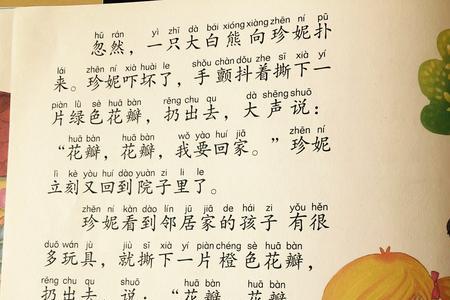 hū rán yì zhī dà bái xióng xiàng zhēn ní pū
忽然，一只大白熊向珍妮扑
lái zhēn ní xià huài le shǒu chàn dǒu zhe sī xià yí
来。珍妮吓坏了，手颤抖着撕下一
piàn lǜ sè huā bàn rēng chu qu dà shēng shuō
片绿色花瓣，扔出去，大声说：
huā bàn huā bàn wǒ yào huí jiā zhēn ní
“花瓣，花瓣，我要回家。”珍妮
lì kè yòu huí dào yuàn zi li le
立刻又回到院子里了。
zhēn ní kàn dào lín jū jiā de hái zi yǒu hěn
珍妮看到邻居家的孩子 有很
duō wán jù jiù sī xià yí piàn chéng sè huā bàn
多玩具，就撕下一片橙色花瓣，
rēng chu qu shuō huā bàn huā bàn
扔出去，说：“花瓣，花瓣